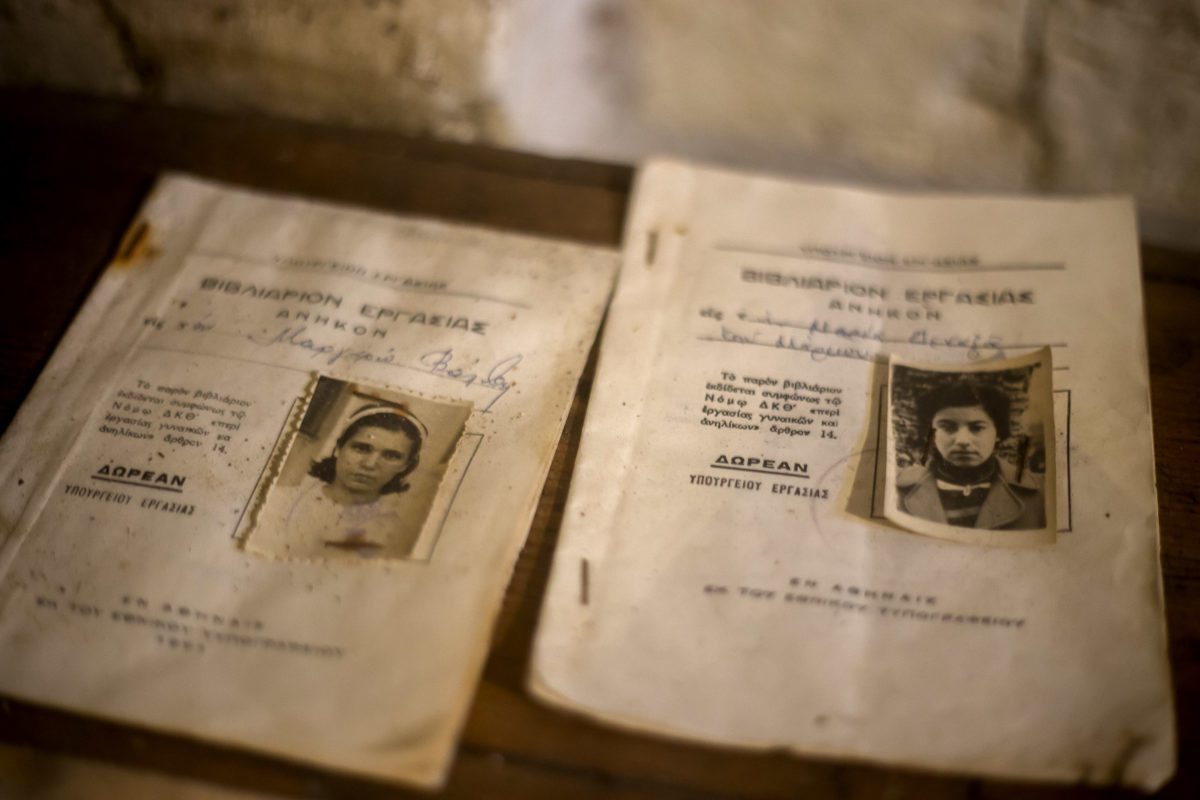 ΥΠΟΥΡΓΕΙΟΝ ΕΡΓΑΣΙΑΣ
ΒΙΒΛΙΑΡΙΟΝ ΕΡΓΑΣΙΑΣ
ΑΝΗΚΟΝ
εἰς τὴν
Τὸ παρὸν βιβλιάριον
ἐκδίδεται συμφώνως τῷ
Νόμῳ ΔΚΘ' «περὶ
ἐργασίας γυναικῶν καὶ
ἀνηλίκων» ἄρθρον 14.
ΔΩΡΕΑΝ
ΥΠΟΥΡΓΕΙΟΥ ΕΡΓΑΣΙΑΣ
ΕΝ ΑΘΗΝΑΙΣ
ΕΚ ΤΟΥ ΕΘΝΙΚΟΥ ΤΥΠΟΓΡΑΦΕΙΟΥ
ΥΠΟΥΡΓΕΙΟΝ ΕΡΓΑΣΙΑΣ
ΒΙΒΛΙΑΡΙΟΝ ΕΡΓΑΣΙΑΣ
ΑΝΗΚΟΝ
εἰς
Τὸ παρὸν βιβλιάριον
ἐκδίδεται συμφώνως τῷ
Νόμῳ ΔΚΘ' «περὶ
ἐργασίας γυναικῶν καὶ
ἀνηλίκων» ἄρθρον 14.
ΔΩΡΕΑΝ
ΥΠΟΥΡΓΕΙΟΥ ΕΡΓΑΣΙΑΣ
ΕΝ ΑΘΗΝΑΙΣ
ΕΚ ΤΟΥ ΕΘΝΙΚΟΥ ΤΥΠΟΓΡΑΦΕΙΟΥ